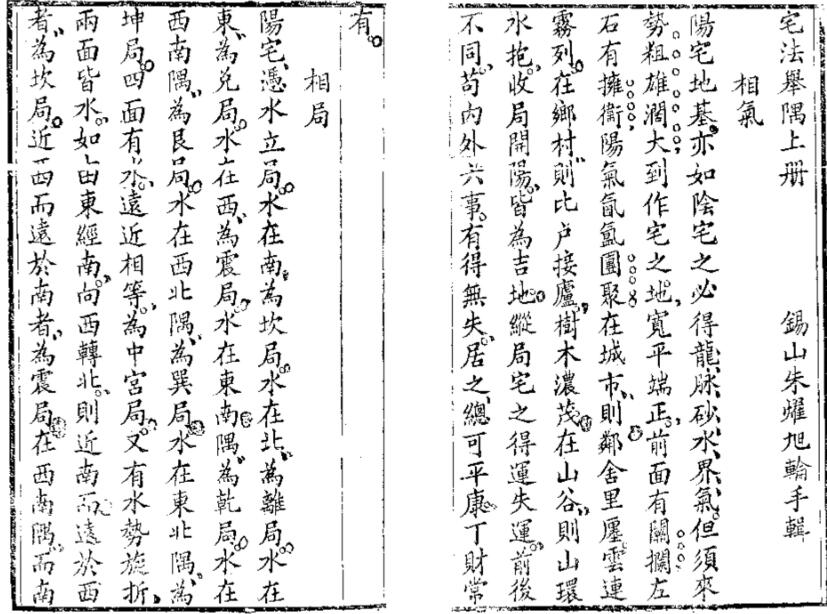 宅法舉隅上册
錫山朱燿旭輪手輯
相氣
陽宅地基亦如陰宅之必得龍脉砂水界氣但須來
勢粗雄濶大到作宅之地寬平端正前面有關攔左
石有擁衞陽氣氤氳團聚在城市則鄰舍里廛雲連
霧列在鄉村則比卢接廬樹木濃茂在山谷則山環
水抱收局開陽皆為吉地縱局宅之得運失運前後
不同苟內外六事有得無失居之總可平康丁財常
有
相局
陽宅憑水立局水在南為坎局水在北為離局水在
東為兌局水在西為震局水在東南隅為乾局水在
西南隅為艮局水在西北隅為巽局水在東北隅為
坤局四面有水遠近相等為中宮局又有水勢旋折
兩面皆水如由東經南向西轉北則近南而遠於西
者為坎局近西而遠於南者為震局在西南隅而南